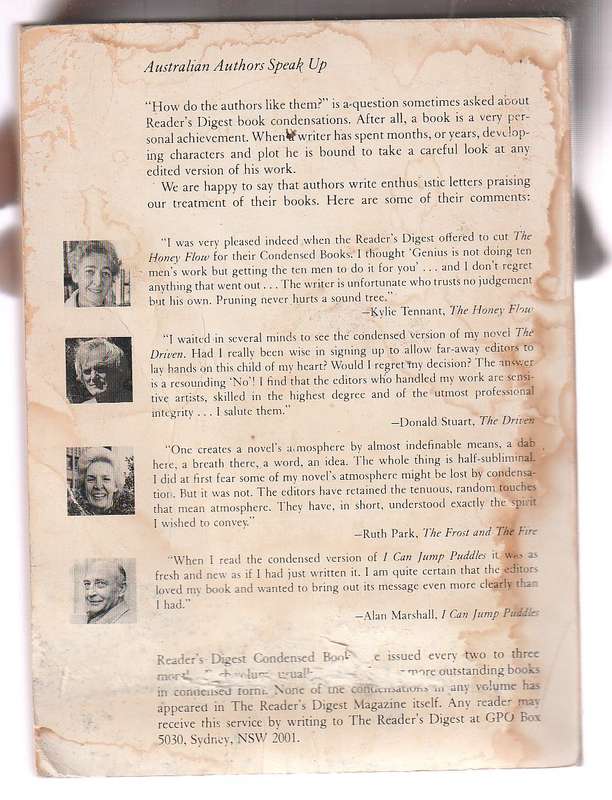 Australian Authors Speak Up
"How do the authors like them?" is a question sometimes asked about
Reader's Digest book condensations. After all, a book is a very per-
sonal achievement. When a writer has spent months, or years, develop-
ing characters and plot he is bound to take a careful look at any
edited version of his work.
We are happy to say that authors write enthus istic letters praising
our treatment of their books. Here are some of their comments:
"I was very pleased indeed when the Reader's Digest offered to cut The
Honey Flow for their Condensed Books. I thought 'Genius is not doing ten
men's work but getting the ten men to do it for you' . . . and I don't regret
anything that went out . . . The writer is unfortunate who trusts no judgement
but his own. Pruning never hurts a sound tree."
—Kylie Tennant, The Honey Flow
"I waited in several minds to see the condensed version of my novel The
Driven. Had I really been wise in signing up to allow far-away editors to
lay hands on this child of my heart? Would I regret my decision? The answer
is a resounding 'No'! I find that the editors who handled my work are sensi-
tive artists, skilled in the highest degree and of the utmost professional
integrity . . . I salute them."
—Donald Stuart, The Driven
"One creates a novel's atmosphere by almost indefinable means, a dab
here, a breath there, a word, an idea. The whole thing is half-subliminal.
I did at first fear some of my novel's atmosphere might be lost by condensa-
tion. But it was not. The editors have retained the tenuous, random touches
that mean atmosphere. They have, in short, understood exactly the spirit
I wished to convey."
—Ruth Park, The Frost and The Fire
"When I read the condensed version of I Can Jump Puddles it was as
fresh and new as if I had just written it. I am quite certain that the editors
loved my book and wanted to bring out its message even more clearly than
I had."
—Alan Marshall, I Can Jump Puddles
Reader's Digest Condensed Book e issued every two to three
more outstanding books
in condensed form. None of the condensations in any volume has
appeared in The Reader's Digest Magazine itself. Any reader may
receive this service by writing to The Reader's Digest at GPO Box
5030, Sydney, NSW 2001.